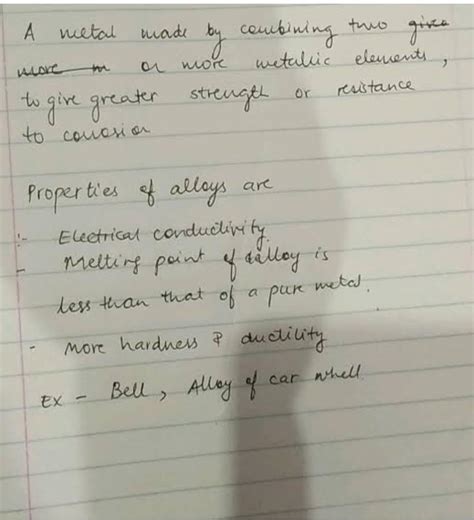 A metal made by combining two give
more m or more metallic elements,
to give greater strength or resistance
to corrosion
Properties of alloys are
:- Electrical conductivity.
- Melting point of alloy is
less than that of a pure metal.
- More hardness & ductility
Ex - Bell, Alloy of car whell